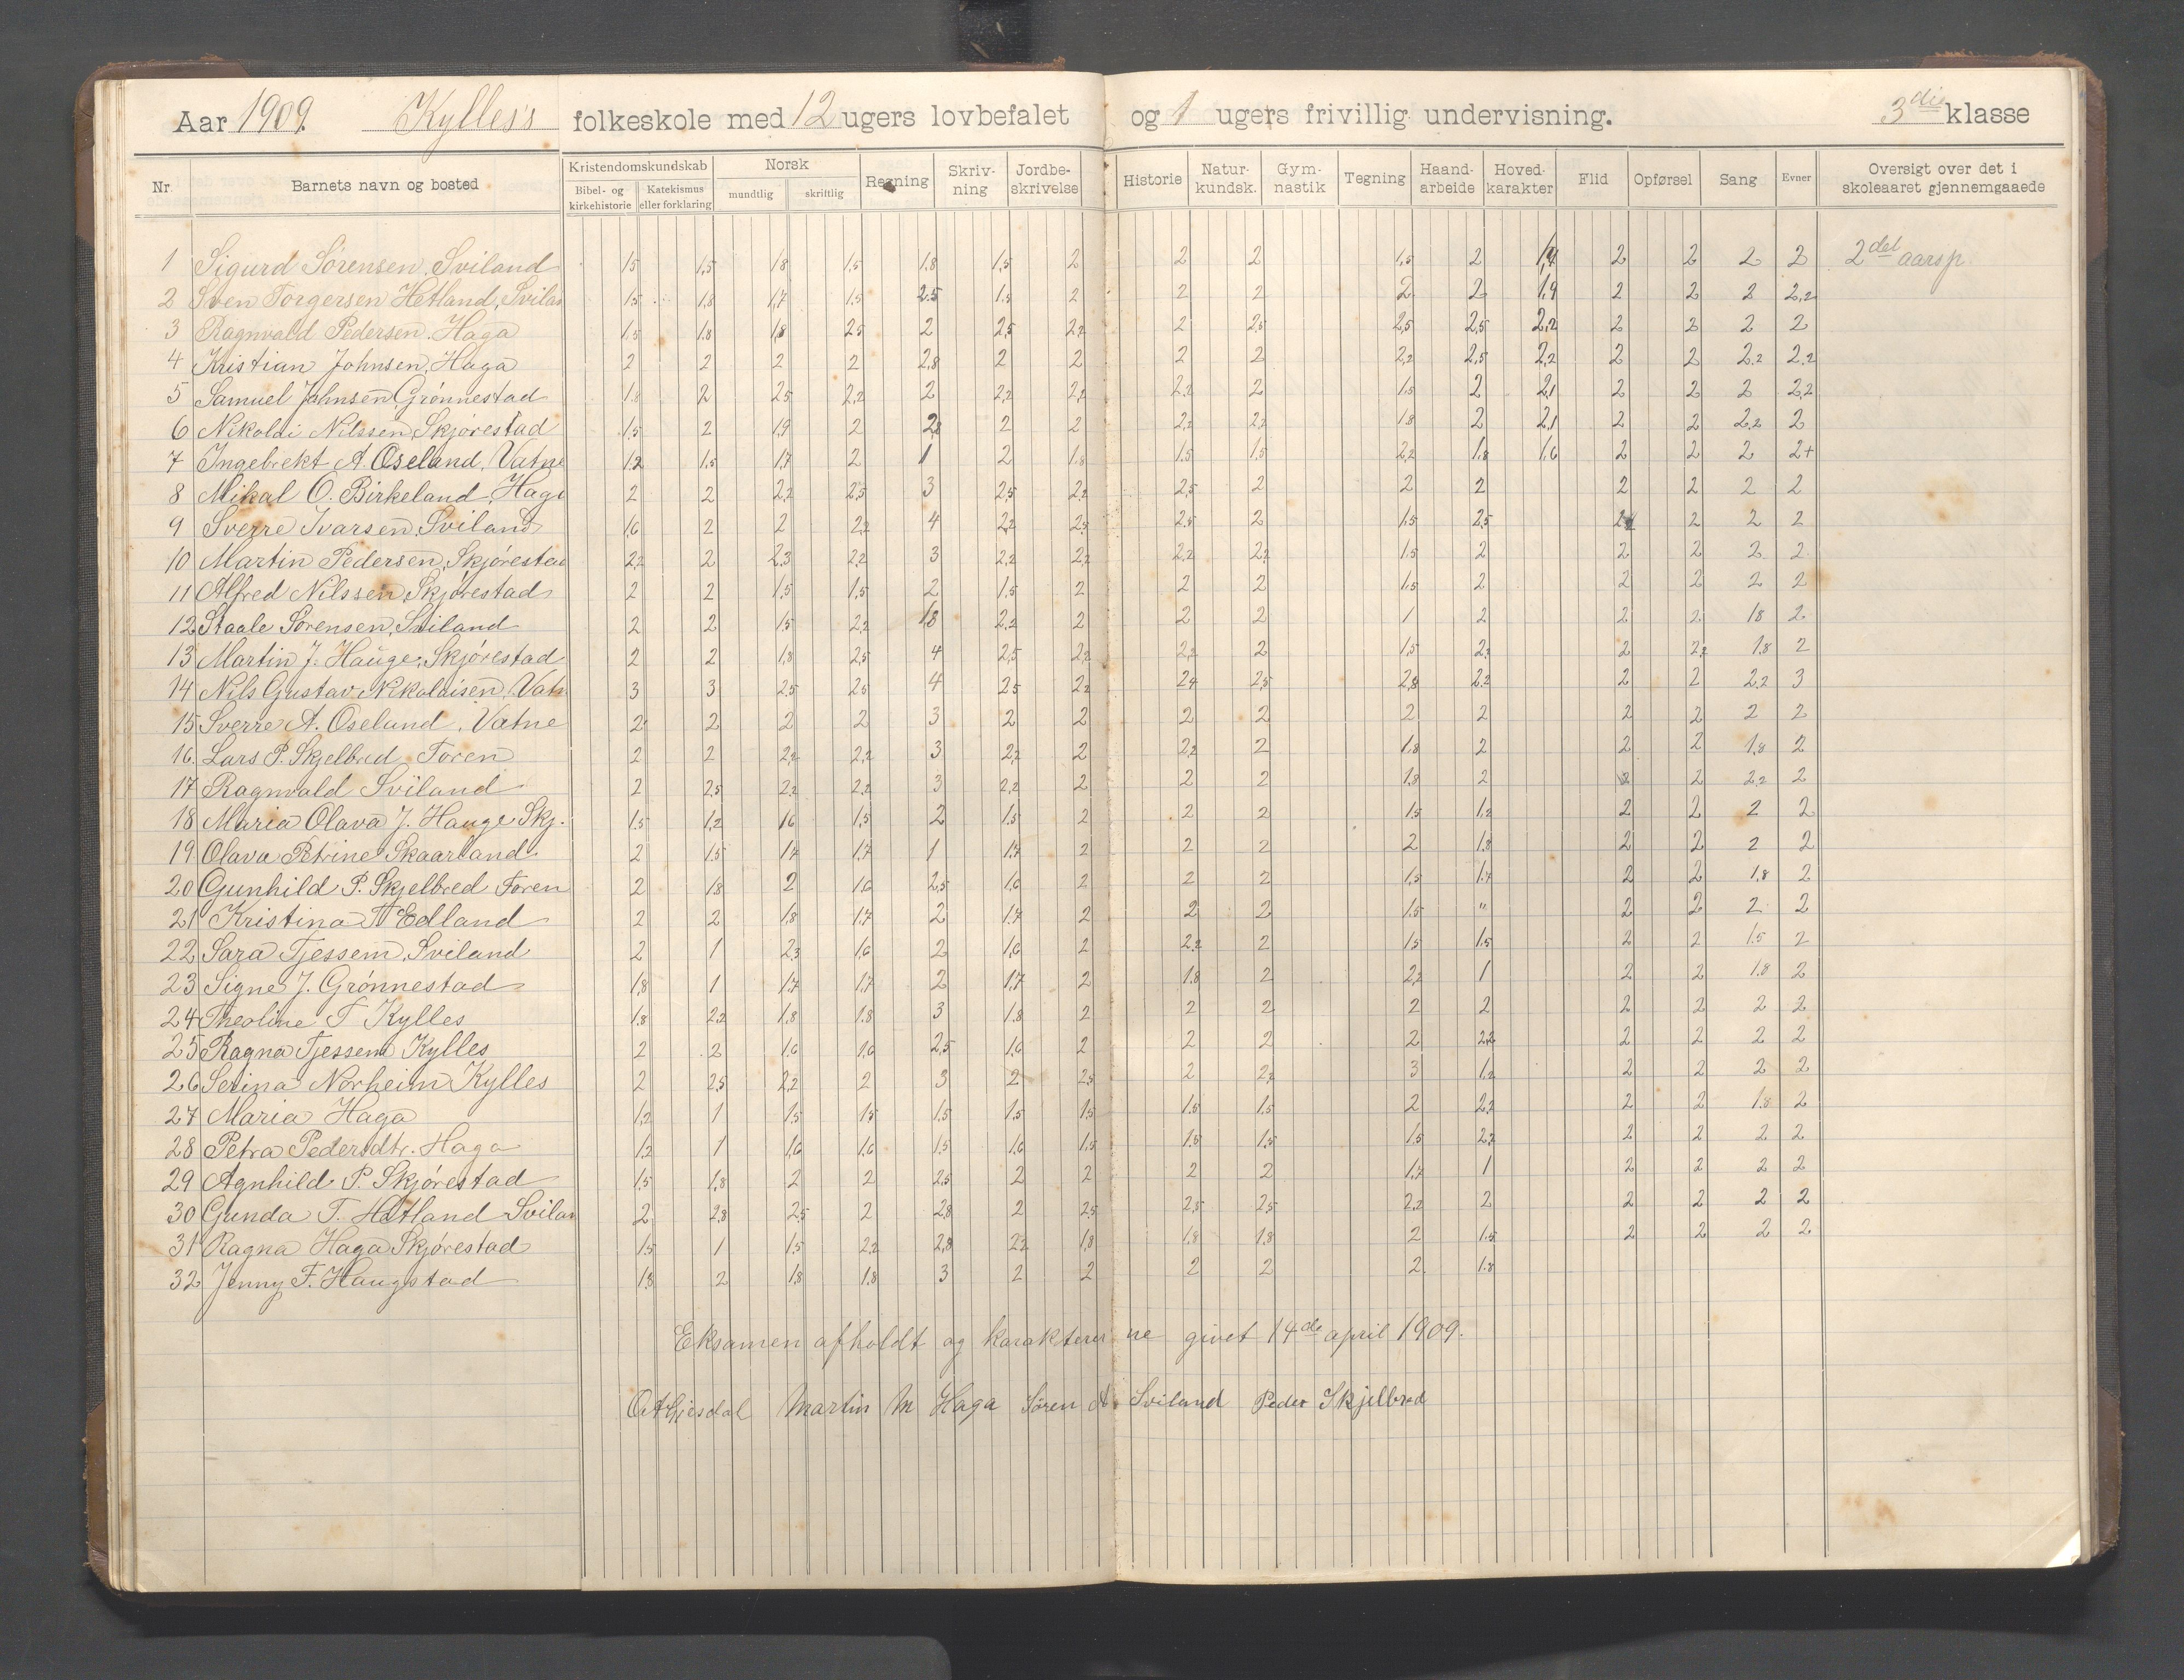 Aar 1909. Kylles's folkeskole med 12 ugers lovbefalet og 1 ugers frivillig undervisning. 3die klasse
Nr. Barnets navn og bosted Kristendomskundskab Bibel- og kirkehistorie Katekismus eller forklaring Norsk mundtlig skriftlig Regning Skrivning Jordbeskrivelse Historie Naturkundsk. Gymnastik Tegning Haandarbeide Hovedkarakter Flid Opførsel Sang Evner Oversigt over det i skoleaaret gjennemgaaede
1 Sigurd Sørensen, Sviland 1,5 1,5 1,8 1,5 1,8 1,5 2 2 2 1,5 2 1,9 2 2 2 2 2det aarsp
2 Sven Torgersen Hetland, Svilan 1,5 1,8 1,7 1,5 2,5 1,5 2 2 2 2 2 1,9 2 2 2 2,2
3 Ragnvald Pedersen, Haga 1,5 1,8 1,8 2,5 2 2,5 2,2 2 2,5 2,5 2,5 2,2 2 2 2 2
4 Kristian Johnsen, Haga 2 2 2 2 2,8 2 2 2 2 2,2 2,5 2,2 2 2 2,2 2,2
5 Samuel Johnsen, Grønnestad 1,8 2 2,5 2,2 2 2,2 2,2 2,2 2 1,5 2 2,1 2 2 2 2,2
6 Nikolai Nilssen, Skjørestad 1,5 2 1,9 2 2,8 2 2 2,2 2,2 1,8 2 2,1 2 2 2,2 2
7 Ingebrekt A. Oseland, Vatne 1,2 1,5 1,7 2 1 2 1,8 1,5 1,5 2,2 1,8 1,6 2 2 2 2+
8 Mikal O. Birkeland, Haga 2 2 2,2 2,5 3 2,5 2,2 2,5 2 2 2 2 2 2 2
9 Sverre Ivarsen, Sviland 1,6 2 2 2,2 4 2,2 2,5 2,5 2 1,5 2,5 2 2 2 2
10 Martin Pedersen, Skjørestad 2,2 2 2,3 2,2 3 2,2 2,2 2,2 2,2 1,5 2 2 2 2 2
11 Alfred Nilssen, Skjørestad 2 2 1,5 1,5 2 1,5 2 2 2 1,5 2 2 2 2 2
12 Staale Sørensen, Sviland 2 2 1,5 2,2 1,8 2,2 2 2 2 1 2 2 2 1,8 2
13 Martin J. Hauge, Skjørestad 2 2 1,8 2,5 4 2,5 2,2 2,2 2 1,5 2,2 2 2,2 1,8 2
14 Nils Gustav Nikolaisen, Vatn 3 3 2,5 2,5 4 2,5 2,2 2,4 2,5 2,8 2,2 2 2 2,2 3
15 Sverre A. Oseland, Vatne 2 2 2 2 3 2 2 2 2 2 2 2 2 2 2
16 Lars P. Skjelbred Foren 2 2 2,2 2,2 3 2,2 2 2,2 2 1,8 2 2 2 1,8 2
17 Ragnvald Sviland 2 2,5 2,2 2,2 3 2,2 2 2 2 1,8 2 2 2 2,2 2
18 Maria Olava J. Hauge Skj. 1,5 1,2 1,6 1,5 2 1,5 2 2 2 1,5 1,2 2 2 2 2
19 Olava Petrine Skaarland 2 1,5 1,7 1,7 1 1,7 2 2 2 2 1,8 2 2 2 2
20 Gunhild P. Skjelbred Foren 2 1,8 2 1,6 2,5 1,6 2 2 2 1,5 1,7 2 2 1,8 2
21 Kristina T Edland 2 2 1,8 1,7 2 1,7 2 2 2 1,5 " 2 2 2 2
22 Sara Tjessem, Sviland 2 1 2,3 1,6 2 1,6 2 2,2 2 1,5 1,5 2 2 1,5 2
23 Signe J. Grønnestad 1,8 1 1,7 1,7 2 1,7 2 1,8 2 2,2 1 2 2 1,8 2
24 Theoline T Kylles 1,8 2,2 1,8 1,8 3 1,8 2 2 2 2 2 2 2 2 2
25 Ragna Tjessem Kylles 2 2 1,6 1,6 2,5 1,6 2 2 2 2 2,2 2 2 2 2
26 Serina Norheim Kylles 2 2,5 2,2 2 3 2 2,5 2 2,2 3 1,2 2 2 2 2
27 Maria Haga 1,2 1 1,5 1,5 1,5 1,5 1,5 1,5 1,5 2 2,2 2 2 1,8 2
28 Petra Pedersdtr. Haga 1,2 1 1,6 1,6 1,5 1,6 1,5 1,5 1,5 1,5 2,2 2 2 2 2
29 Agnhild P. Skjørestad 1,5 1,8 2 2 2,5 2 2 2 2 1,7 1 2 2 2 2
30 Gunda T. Hetland Svilan 2 2,8 2,5 2 2,8 2 2,5 2,5 2,5 2,2 2 2 2 2 2
31 Ragna Haga Skjørestad 1,5 1 1,5 2,2 2,8 2,2 1,8 1,8 1,8 2 1,5 2 2 2 2
32 Jenny F. Haugstad 1,8 2 1,8 1,8 3 2 2 2 2 2 1,8
Eksamen afholdt og karakterer ne givet 14de april 1909.
Gjesdal Martin M Haga Søren A Sviland Peder Skjelbred